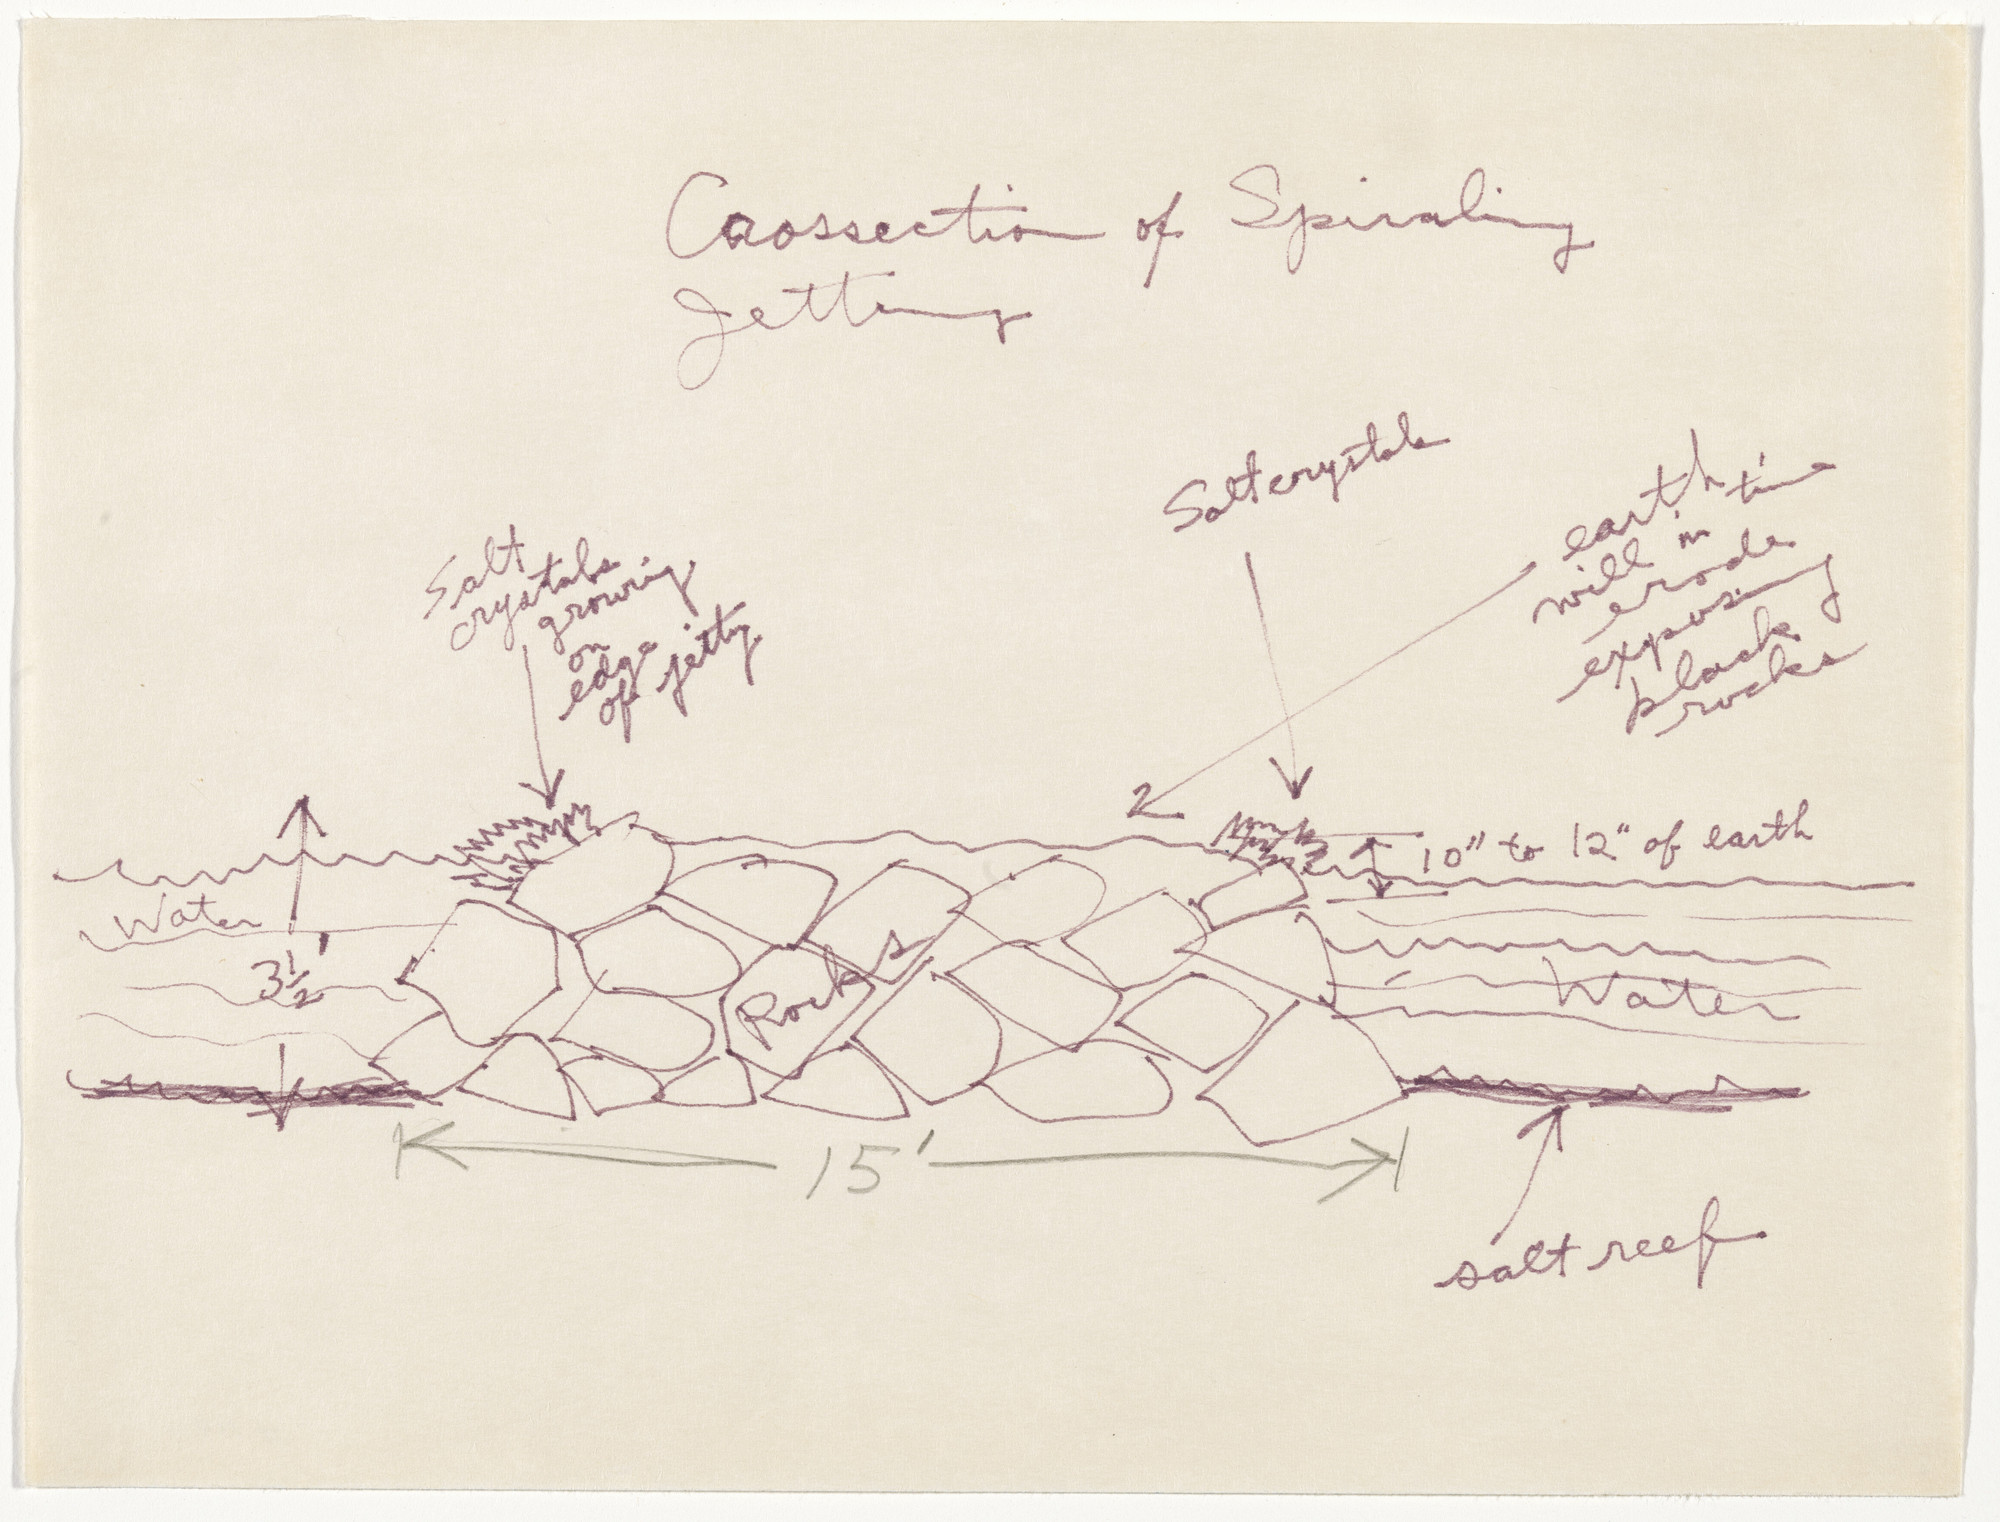 Crossection of Spiraling
Jetty
Salt crystals
earth
will in time
erode
exposing
black
rocks
Salt
crystals
growing
on
edge
of jetty
10" to 12" of earth
Water
3½'
Rocks
Water
15'
salt reef